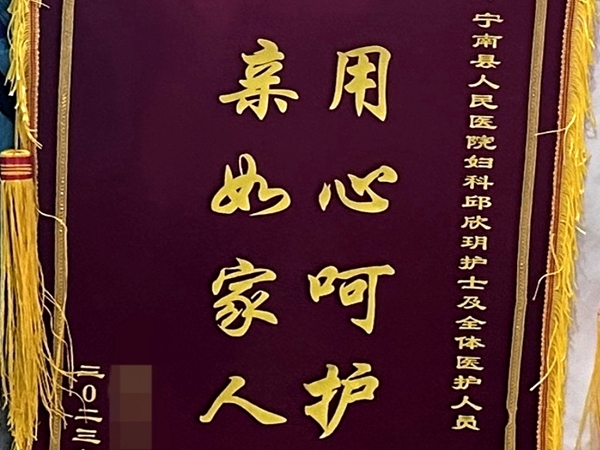 宁南县人民医院妇科邱欣玥护士及全体医护人员
用心呵护
亲如家人
二〇二三